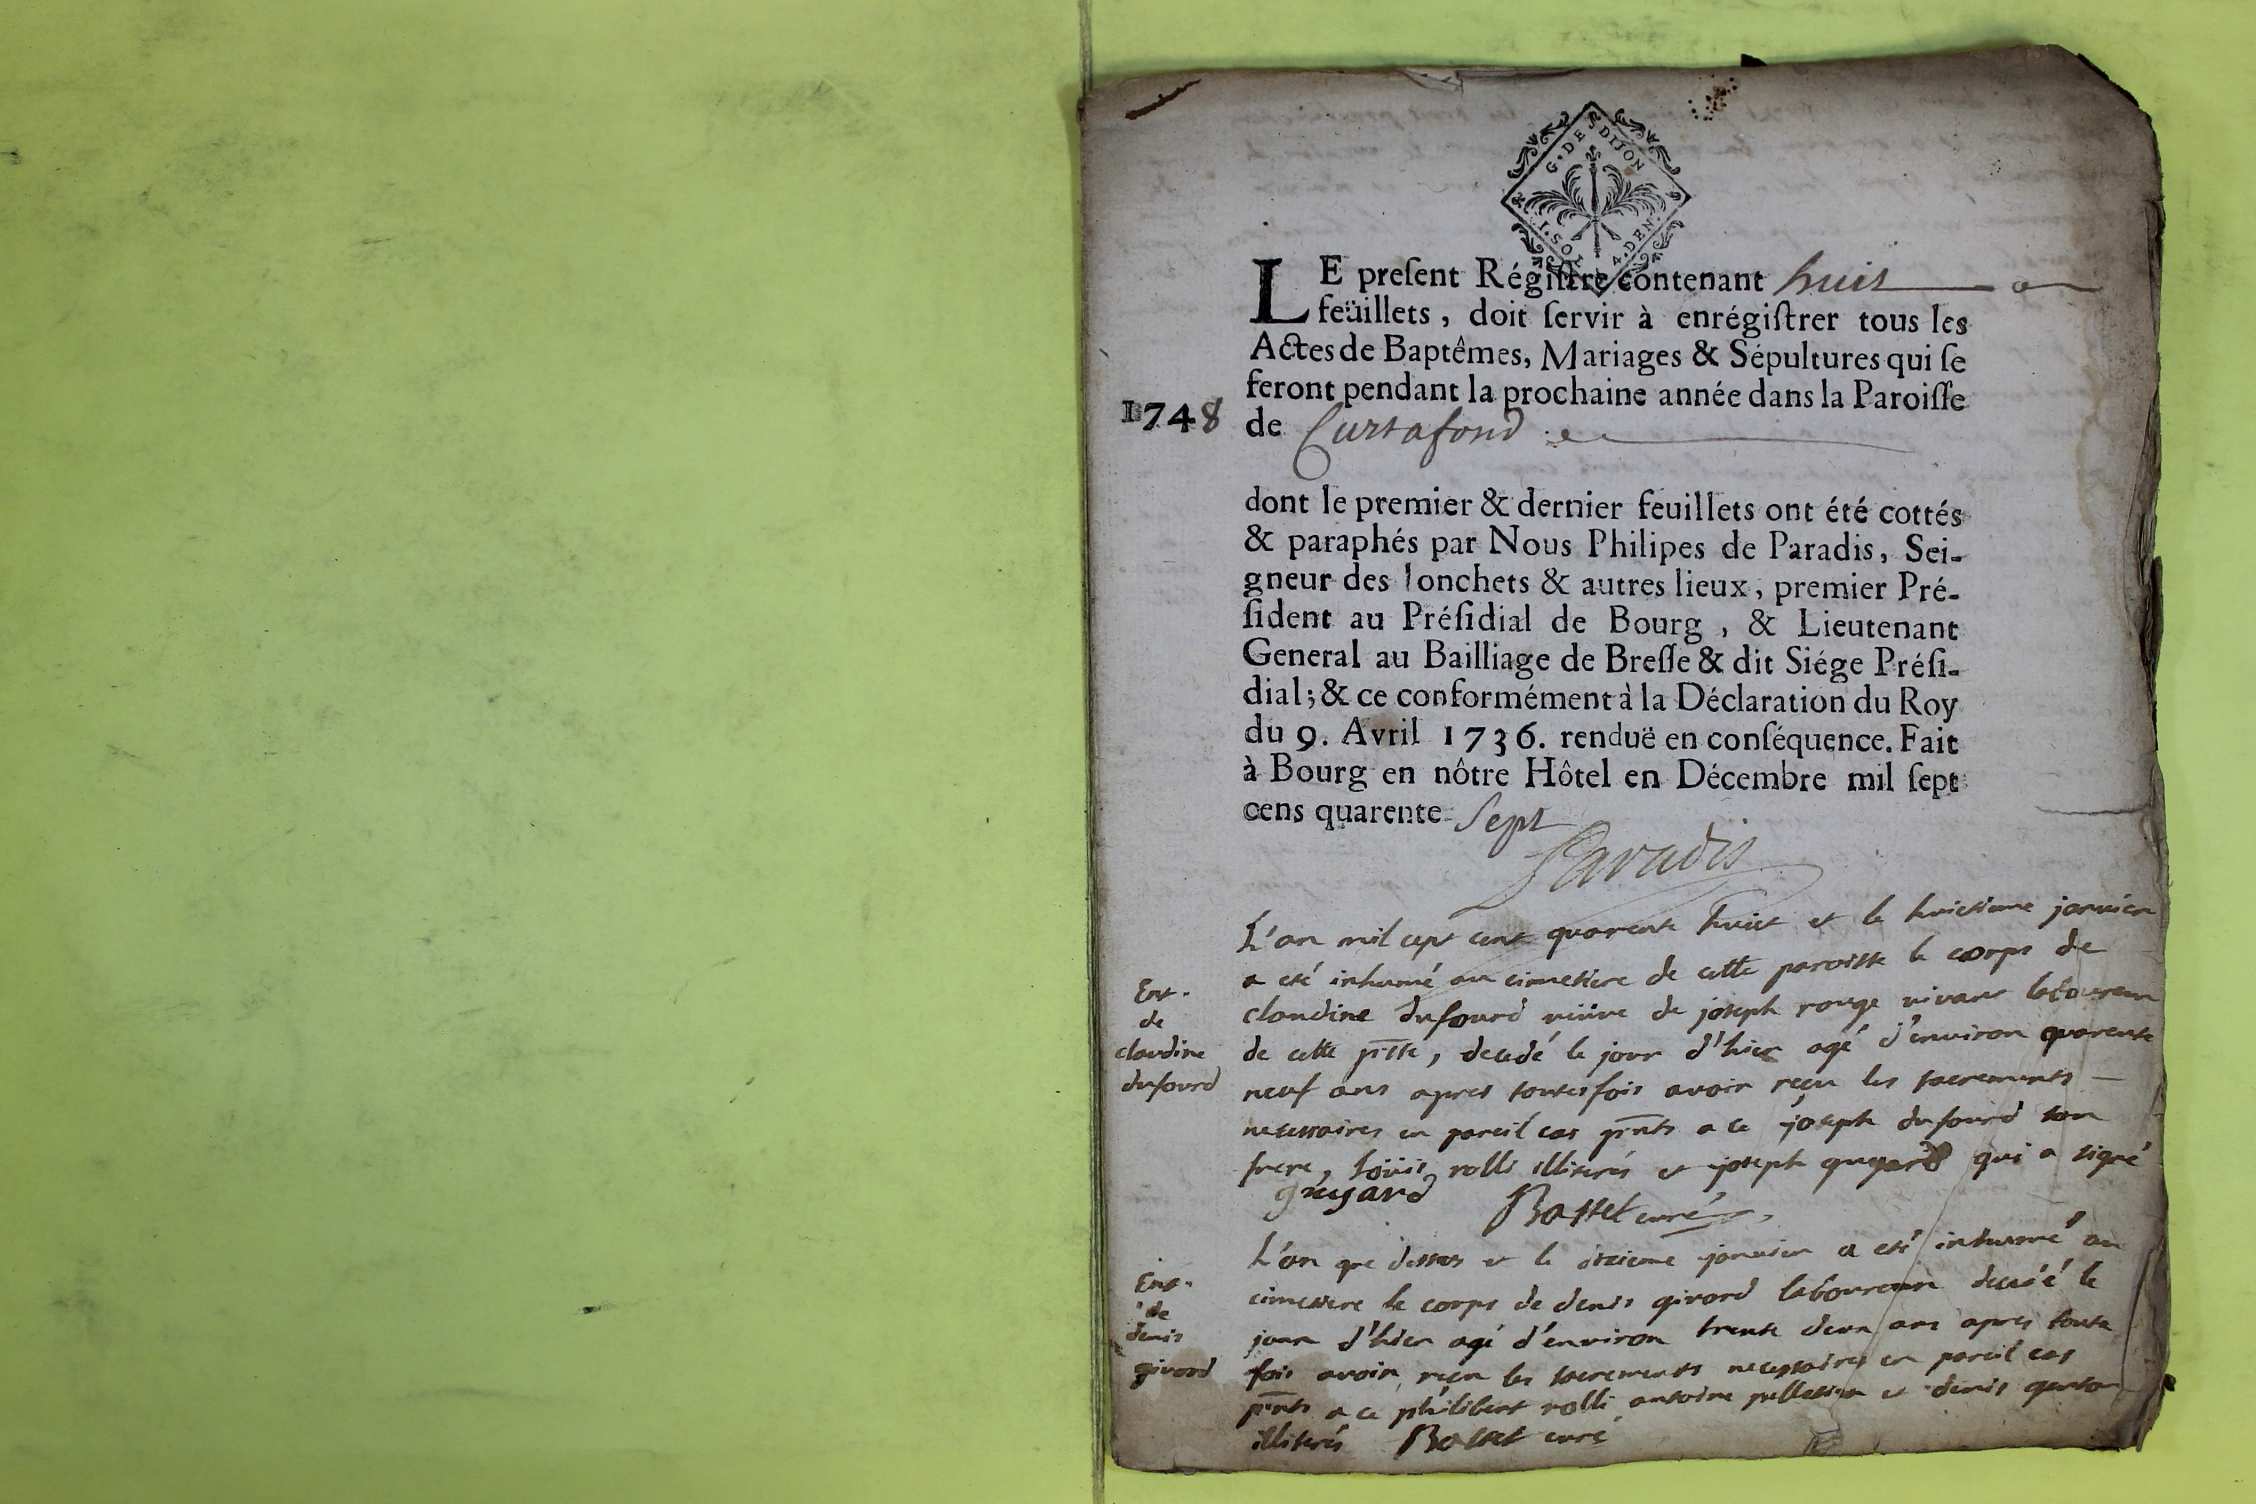 G. DE DIJON
I. SOL 4. DEN.
LE preſent Régiſtre contenant huit
feüillets, doit ſervir à enrégiſtrer tous les
Actes de Baptêmes, Mariages & Sépultures qui ſe
feront pendant la prochaine année dans la Paroiſſe
1748 de Curtafond
dont le premier & dernier feuillets ont été cottés
& paraphés par Nous Philipes de Paradis, Sei-
gneur des Ionchets & autres lieux, premier Pré-
ſident au Préſidial de Bourg, & Lieutenant
General au Bailliage de Breſſe & dit Siége Préſi-
dial; & ce conformément à la Déclaration du Roy
du 9. Avril 1736. renduë en conſéquence. Fait
à Bourg en nôtre Hôtel en Décembre mil ſept
cens quarente sept
Paradis
L'an mil cept cent quarente huit et le huictieme janvier
a eté inhumé au cimetiere de cette paroisse le corps de
Ent.
de
claudine
dufourd
claudine dufourd veüve de joseph rouge vivant laboureur
de cette pisse, decedé le jour d'hier agé d'environ quarente
neuf ans apres toutesfois avoir reçu les sacrements
necessaires en pareil cas pnts a ce joseph dufourd son
frere, loüis rolli illiterés et joseph guyard qui a signé
guyard Basset curé
L'an que dessus et le janvier a eté inhumé au
Ent.
de
denis
girard
cimetiere le corps de denis girard laboureur decedé le
jour d'hier agé d'environ trente deux ans apres toute
fois avoir reçu les sacrements necessaires en pareil cas
pnts a ce philibert rolli antoine pelletier et denis
illiterés Basset curé